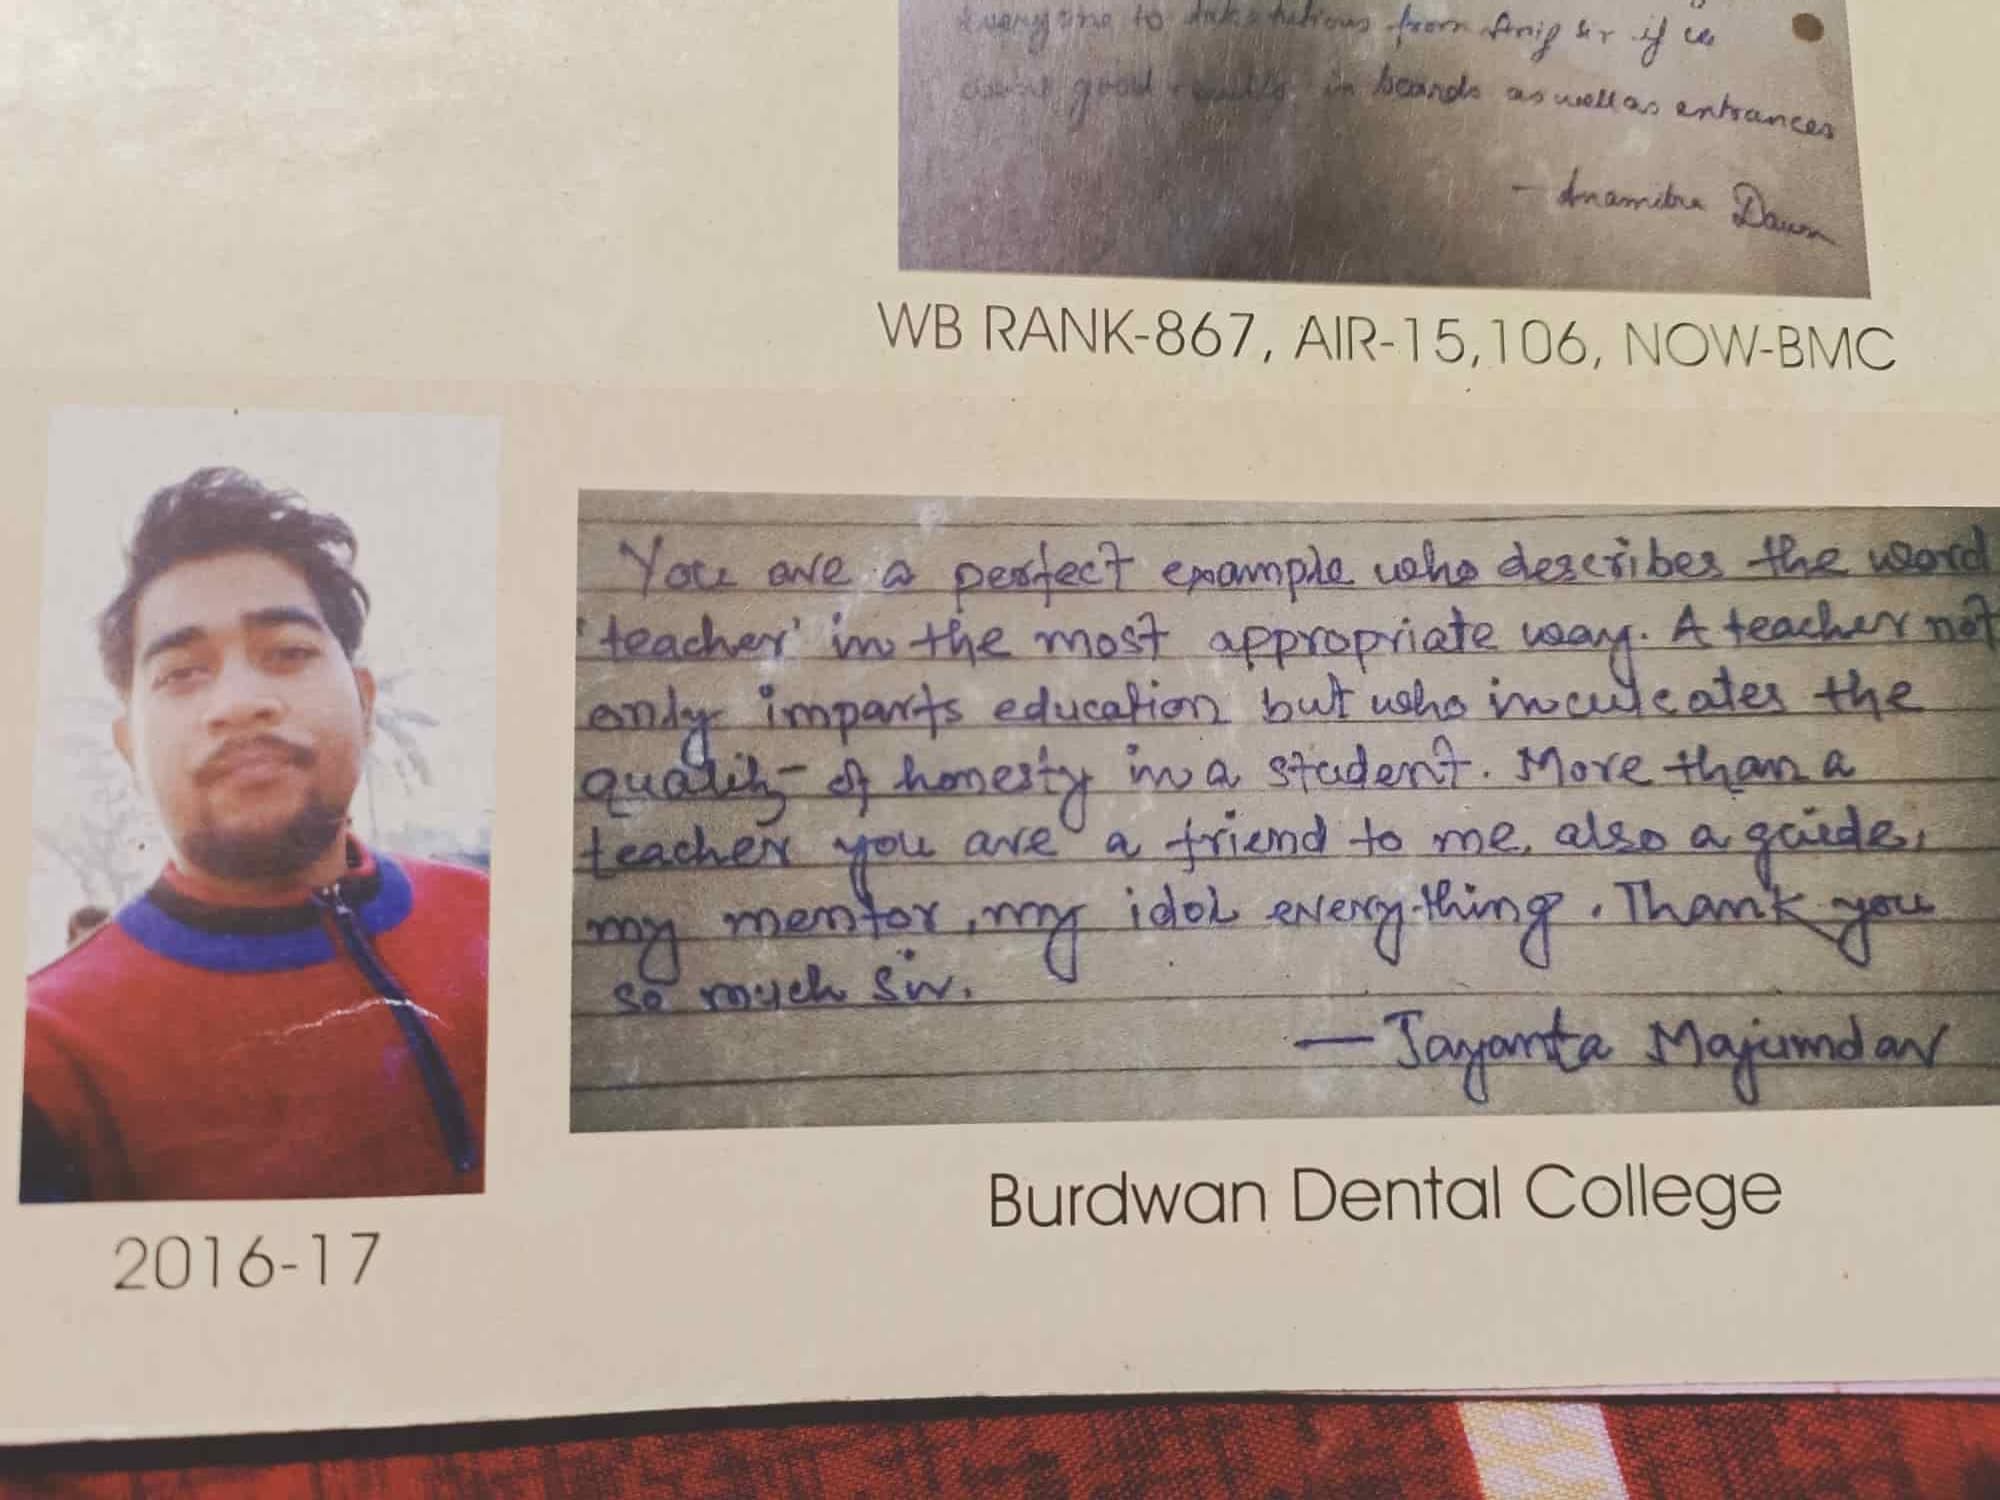 everyone to take tutions from sir if
good results in boards as well as entrances
- Anamitra Dawn
WB RANK-867, AIR-15,106, NOW-BMC
You are a perfect example who describes the word
'teacher' in the most appropriate way. A teacher not
only imparts education but who inculcates the
quality of honesty in a student. More than a
teacher you are a friend to me, also a guide,
my mentor, my idol everything. Thank you
so much Sir.
— Jayanta Majumdar
2016-17
Burdwan Dental College